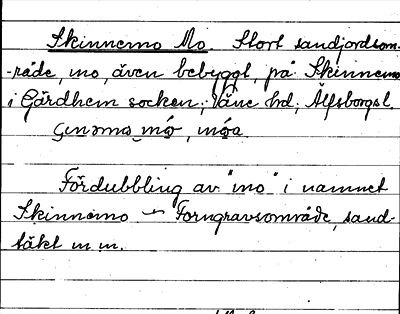 Skinnemo Mo. Stort sandjordsom-
-råde, mo, även bebyggt, på Skinnemo
i Gärdhem socken, Väne hd, Älfsborgsl.
mo̲, 
Fördubbling av "mo" i namnet
Skinnemo – Forngravsområde, sand-
täkt m m.